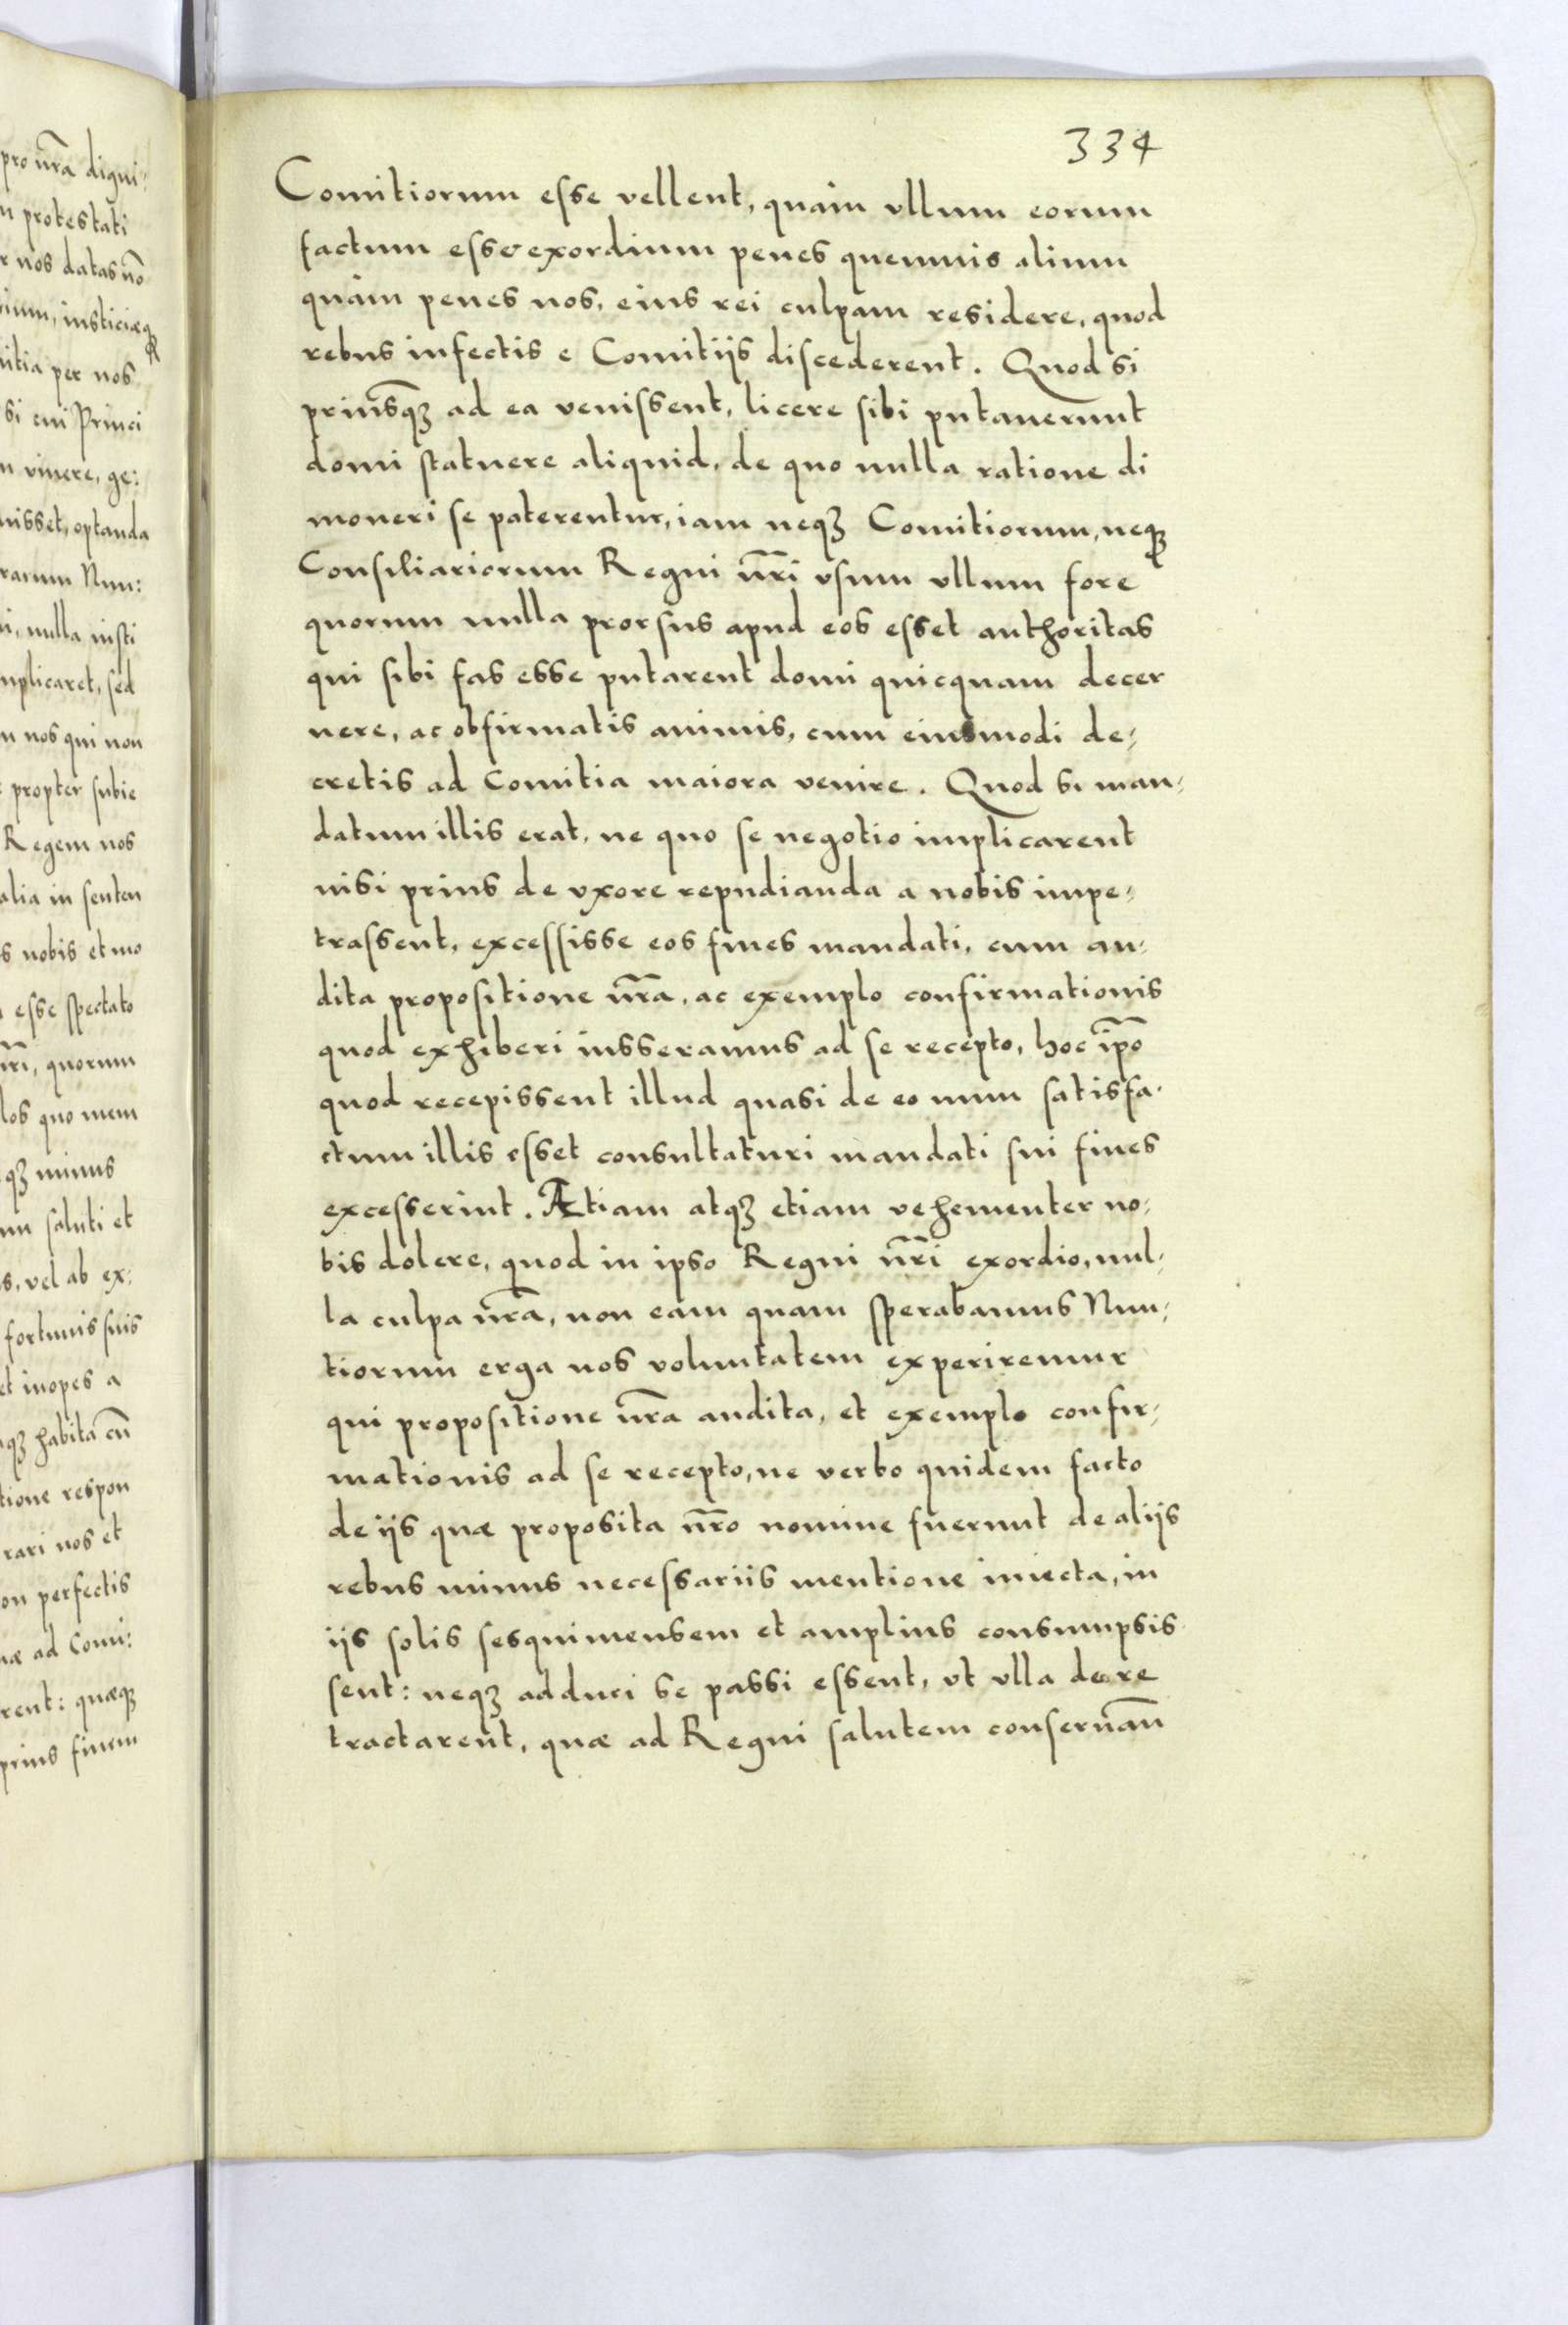 334
Comitiorum esse vellent, quàm vllum eorum
factum esse exordium penes quemuis alium
quàm penes nos, eius rei culpam residere, quod
rebus infectis e Comitijs discederent. Quod si
priusq̃ꝫ ad ea venissent, licere sibi putauerunt
domi statuere aliquid, de quo nulla ratione di
moueri se paterentur, iam neqꝫ Comitiorum, neqꝫ
Consiliariorum Regni nr̃i vsum vllum fore
quorum nulla prorsus apud eos esset authoritas
qui sibi fas esse putarent domi quicquam decer
nere, ac obfirmatis animis, cum eiusmodi de-
cretis ad Comitia maiora venire. Quod si man-
datum illis erat, ne quo se negotio implicarent
nisi prius de vxore repudianda a nobis impe-
trassent, excessisse eos fines mandati, cum au-
dita propositione nr̃a, ac exemplo confirmationis
quod exhiberi iusseramus ad se recepto, hoc ip̃o
quod recepissent illud quasi de eo num satisfa-
ctum illis esset consultaturi mandati sui fines
excesserint. Ætiam atqꝫ etiam vehementer no-
bis dolere, quod in ipso Regni nr̃i exordio, nul-
la culpa nr̃a, non eam quam sperabamus Nun-
tiorum erga nos voluntatem experiremur
qui propositione nr̃a audita, et exemplo confir-
mationis ad se recepto, ne verbo quidem facto
de ijs quæ proposita nr̃o nomine fuerunt de alijs
rebus minus necessariis mentione iniecta, in
ijs solis sesquimensem et amplius consumpsis-
sent: neqꝫ adduci se passi essent, vt vlla de re
tractarent, quæ ad Regni salutem conseruan̄
pro nr̃a digni-
protestati
nos datas nõ
iusticiæqꝫ
per nos
si cui Princi
viuere, ge:
optanda
Nun:
nulla iusti
sed
nos qui non
propter subie
Regem nos
alia in senten
nobis et mo
esse spectato
nr̃i, quorum
quo mem
qꝫ minus
saluti et
vel ab ex:
fortunis suis
et inopes a
habita cũ
respon
nos et
perfectis
ad Comi:
quæqꝫ
prius finem